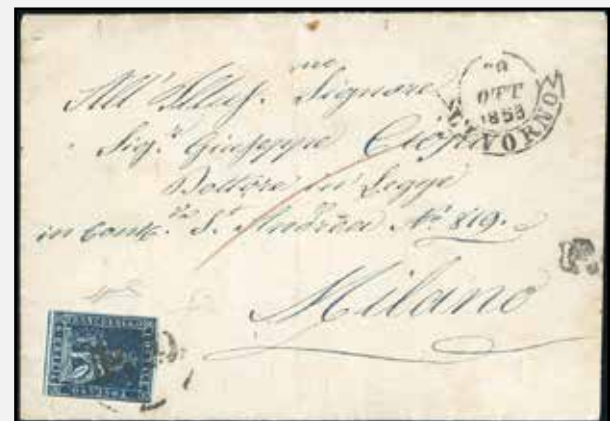 All' Illus.mo Signore
Sig.r Giuseppe
Dottore in Legge
in Cont.da S.t Andrea No. 819.
Milano
OTT
1853
LIVORNO